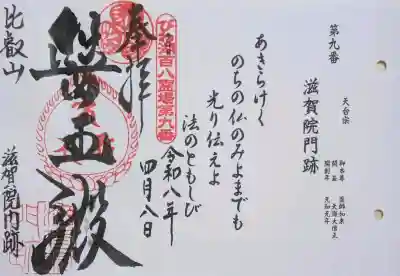 第九番
天台宗
滋賀院門跡
御本尊 薬師如来
開基 天海大僧正
開創年 元和元年
あきらけく
のちの仏のみよまでも
光り伝えよ
法のともしび
令和八年
四月八日
びわ湖百八霊場第九番
奉拝
王殿
比叡山
滋賀院門跡